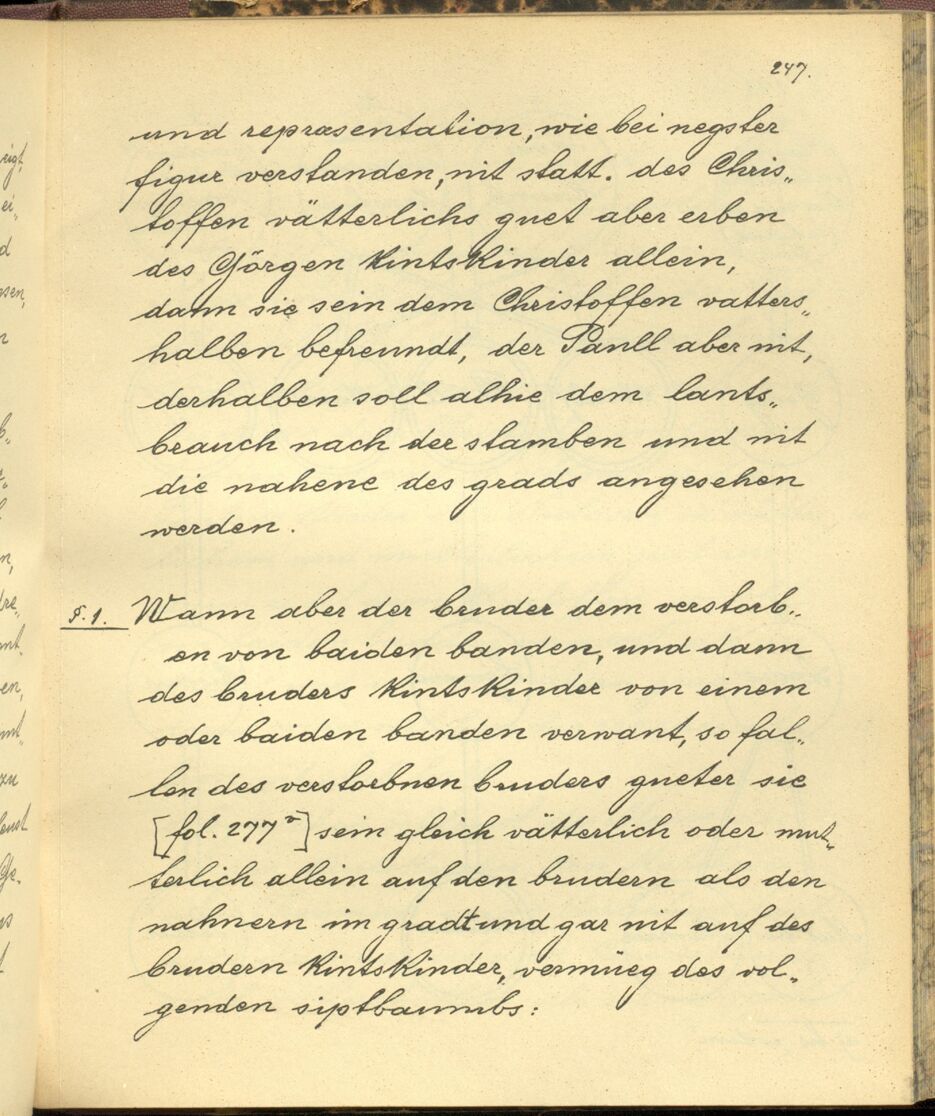 247.
und repræsentation, wie bei negster
figur verstanden, nit statt. des Chris„
toffen vätterlichs guet aber erben
des Görgen kintskinder allein,
dann sie sein dem Christoffen vatters„
halben befreundt, der Paull aber nit,
derhalben soll alhie dem lants„
brauch nach der stamben und nit
die nahene des grads angesehen
werden.
§. 1. Wann aber der bruder dem verstorb„
en von baiden banden, und dann
des bruders kintskinder von einem
oder baiden banden verwant, so fal„
len des verstorbnen bruders gueter sie
[fol. 277ᵛ] sein gleich vätterlich oder mut„
terlich allein auf den brudern als den
nahnern im gradt und gar nit auf des
brudern kintskinder, vermüeg des vol„
genden siptbaumbs: